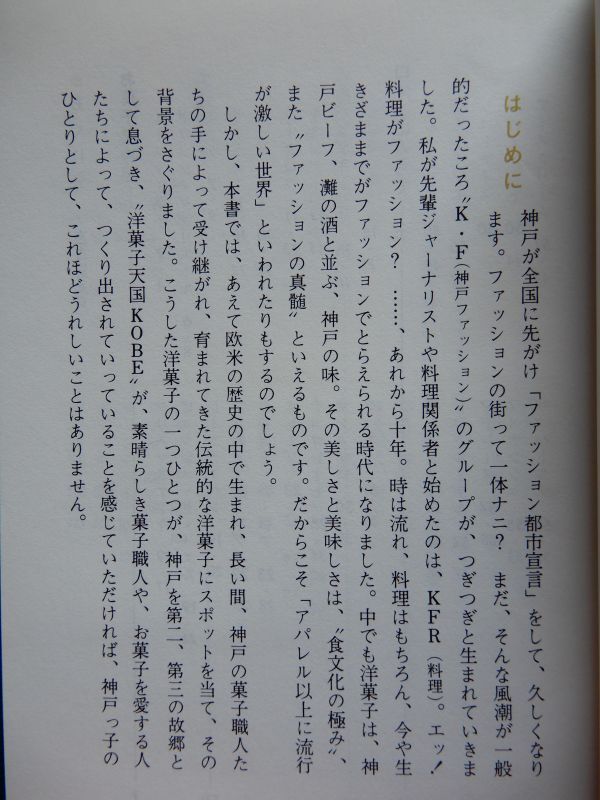 はじめに
神戸が全国に先がけ「ファッション都市宣言」をして、久しくなり
ます。ファッションの街って一体ナニ？　まだ、そんな風潮が一般
的だったころ〝K・F（神戸ファッション）〟のグループが、つぎつぎと生まれていきま
した。私が先輩ジャーナリストや料理関係者と始めたのは、KFR（料理）。エッ！
料理がファッション？　……、あれから十年。時は流れ、料理はもちろん、今や生
きざままでがファッションでとらえられる時代になりました。中でも洋菓子は、神
戸ビーフ、灘の酒と並ぶ、神戸の味。その美しさと美味しさは、〝食文化の極み〟、
また〝ファッションの真髄〟といえるものです。だからこそ「アパレル以上に流行
が激しい世界」といわれたりもするのでしょう。
しかし、本書では、あえて欧米の歴史の中で生まれ、長い間、神戸の菓子職人た
ちの手によって受け継がれ、育まれてきた伝統的な洋菓子にスポットを当て、その
背景をさぐりました。こうした洋菓子の一つひとつが、神戸を第二、第三の故郷と
して息づき、〝洋菓子天国KOBE〟が、素晴らしき菓子職人や、お菓子を愛する人
たちによって、つくり出されていっていることを感じていただければ、神戸っ子の
ひとりとして、これほどうれしいことはありません。